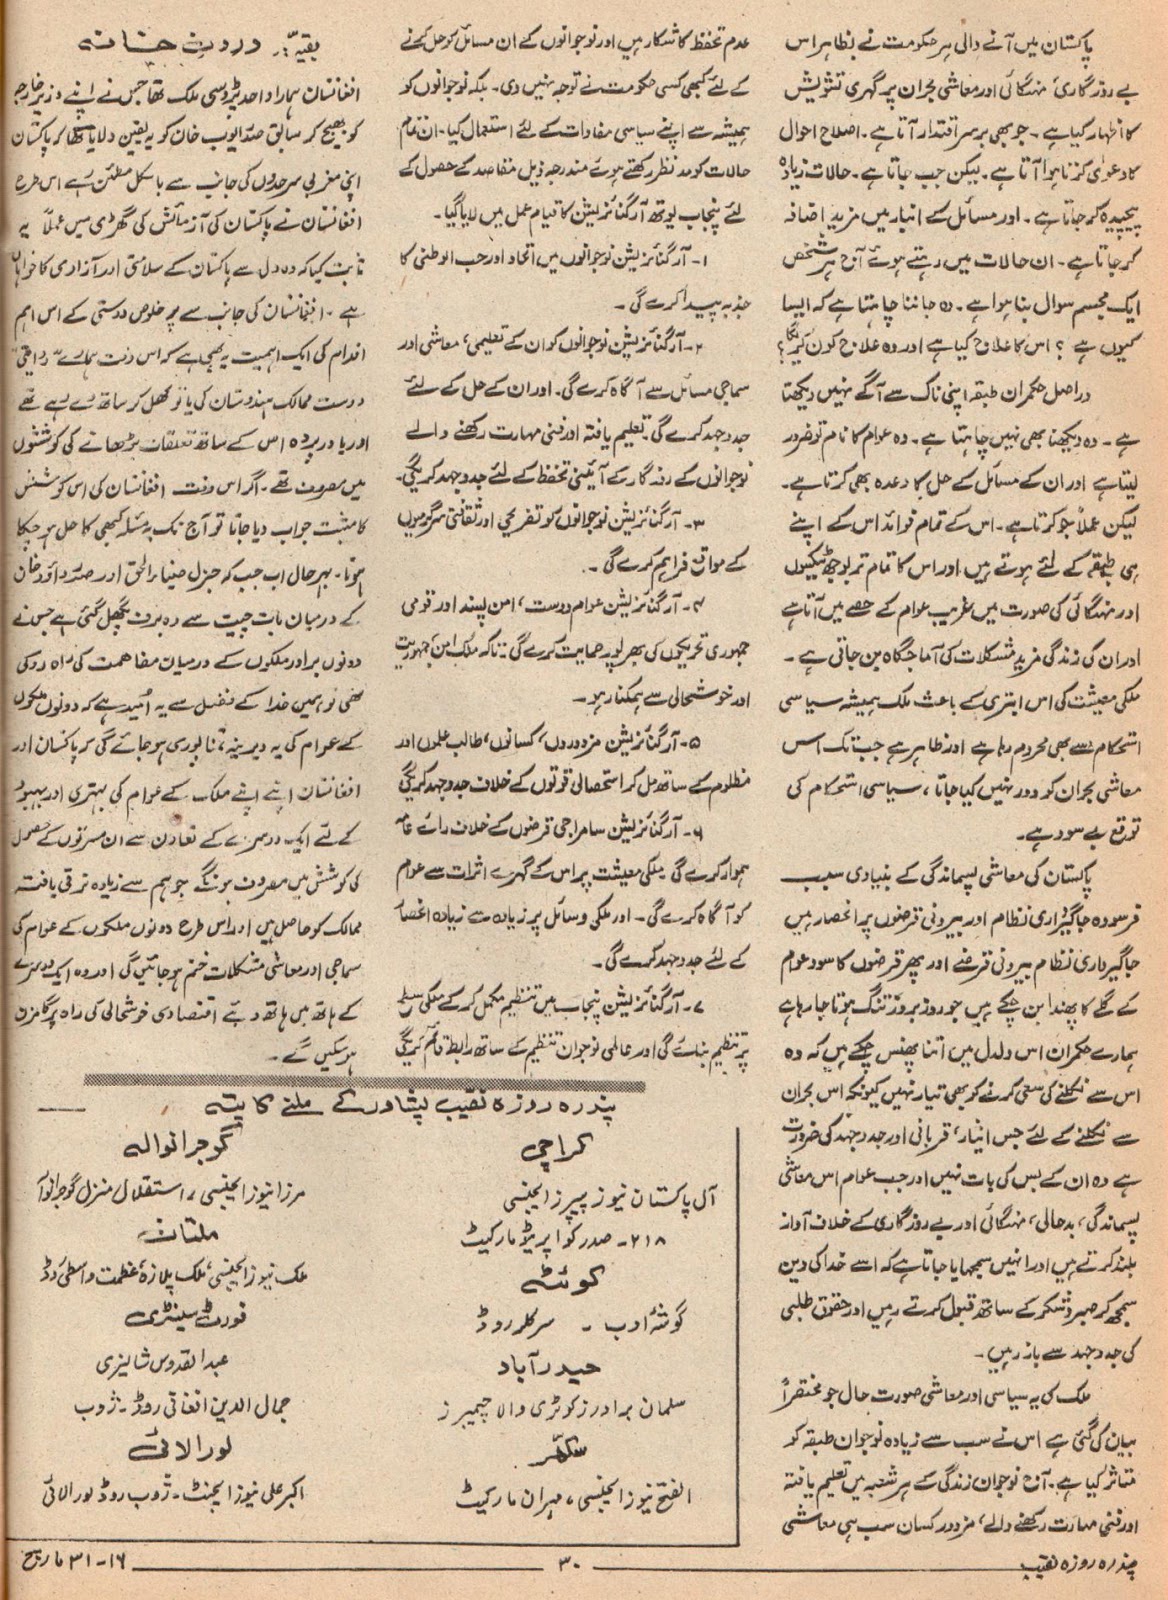 پاکستان میں آنے والی ہر حکومت نے بظاہر اس
بے روزگاری، مہنگائی اور معاشی بحران پر گہری تشویش
کا اظہار کیا ہے۔ جو بھی برسرِ اقتدار آتا ہے۔ اصلاح احوال
کا دعویٰ کرتا ہوا آتا ہے۔ لیکن جب جاتا ہے۔ حالات زیادہ
پیچیدہ کر جاتا ہے۔ اور مسائل کے انبار میں مزید اضافہ
کر جاتا ہے۔ ان حالات میں رہتے ہوئے آج ہر شخص
ایک مجسم سوال بنا ہوا ہے۔ وہ جاننا چاہتا ہے کہ ایسا
کیوں ہے ؟ اس کا علاج کیا ہے اور وہ علاج کون کریگا؟
دراصل حکمران طبقہ اپنی ناک سے آگے نہیں دیکھتا
ہے۔ وہ دیکھنا بھی نہیں چاہتا ہے۔ وہ عوام کا نام تو ضرور
لیتا ہے اور ان کے مسائل کے حل کا وعدہ بھی کرتا ہے۔
لیکن عملاً جو کرتا ہے۔ اس کے تمام فوائد اس کے اپنے
ہی طبقے کے لئے ہوتے ہیں اور اس کا تمام تر بوجھ ٹیکسوں
اور مہنگائی کی صورت میں غریب عوام کے حصے میں آتا ہے
اور ان کی زندگی مزید مشکلات کی آماجگاہ بن جاتی ہے۔
ملکی معیشت کی اس ابتری کے باعث ملک ہمیشہ سیاسی
استحکام سے بھی محروم رہا ہے اور ظاہر ہے جب تک اس
معاشی بحران کو دور نہیں کیا جاتا، سیاسی استحکام کی
توقع بے سود ہے۔
پاکستان کی معاشی پسماندگی کے بنیادی سبب
فرسودہ جاگیرداری نظام اور بیرونی قرضوں پر انحصار ہیں
جاگیرداری نظام بیرونی قرضے اور پھر قرضوں کا سود عوام
کے گلے کا پھندا بن چکے ہیں جو روز بروز تنگ ہوتا جا رہا ہے
ہمارے حکمران اس دلدل میں اتنا پھنس چکے ہیں کہ وہ
اس سے نکلنے کی سعی کرنے کو بھی تیار نہیں کیونکہ اس بحران
سے نکلنے کے لئے جس ایثار، قربانی اور جدوجہد کی ضرورت
ہے وہ ان کے بس کی بات نہیں اور جب عوام اس معاشی
پسماندگی، بدحالی، مہنگائی اور بے روزگاری کے خلاف آواز
بلند کرتے ہیں اور انہیں سمجھایا جاتا ہے کہ اسے خدا کی دین
سمجھ کر صبر و شکر کے ساتھ قبول کرتے رہیں اور حقوق طلبی
کی جدوجہد سے باز رہیں۔
ملک کی یہ سیاسی اور معاشی صورت حال جو مختصراً
بیان کی گئی ہے اس نے سب سے زیادہ نوجوان طبقہ کو
متاثر کیا ہے۔ آج نوجوان زندگی کے ہر شعبہ میں تعلیم یافتہ
اور فنی مہارت رکھنے والے، مزدور کسان سب ہی معاشی
عدم تحفظ کا شکار ہیں اور نوجوانوں کے ان مسائل کو حل کرنے
کے لئے کبھی کسی حکومت نے توجہ نہیں دی۔ بلکہ نوجوانوں کو
ہمیشہ سے اپنے سیاسی مفادات کے لئے استعمال کیا۔ ان تمام
حالات کو مدنظر رکھتے ہوئے مندرجہ ذیل مقاصد کے حصول کے
لئے پنجاب یوتھ آرگنائزیشن کا قیام عمل میں لایا گیا۔
۱۔ آرگنائزیشن نوجوانوں میں اتحاد اور حب الوطنی کا
جذبہ پیدا کرے گی۔
۲۔ آرگنائزیشن نوجوانوں کو ان کے تعلیمی، معاشی اور
سماجی مسائل سے آگاہ کرے گی۔ اور ان کے حل کے لئے
جدوجہد کرے گی۔ تعلیم یافتہ اور فنی مہارت رکھنے والے
نوجوانوں کے روزگار کے آئینی تحفظ کے لئے جدوجہد کریگی۔
۳۔ آرگنائزیشن نوجوانوں کو تفریحی اور ثقافتی سرگرمیوں
کے مواقع فراہم کرے گی۔
۴۔ آرگنائزیشن عوام دوست، امن پسند اور قومی
جمہوری تحریکوں کی بھرپور حمایت کرے گی۔ تاکہ ملک امن جمہوریت
اور خوشحالی سے ہمکنار ہو۔
۵۔ آرگنائزیشن مزدوروں، کسانوں، طالب علموں اور
مظلوم کے ساتھ مل کر استحصالی قوتوں کے خلاف جدوجہد کریگی
۶۔ آرگنائزیشن سامراجی قرضوں کے خلاف رائے عامہ
ہموار کرے گی ملکی معیشت پر اس کے گہرے اثرات سے عوام
کو آگاہ کرے گی۔ اور ملکی وسائل پر زیادہ سے زیادہ انحصار
کے لئے جدوجہد کرے گی۔
۷۔ آرگنائزیشن پنجاب میں تنظیم مکمل کر کے ملکی سطح
پر تنظیم بنائے گی اور عالمی نوجوان تنظیم کے ساتھ رابطہ قائم کریگی
بقیہ: درونِ خانہ
افغانستان ہمارا واحد پڑوسی ملک تھا جس نے اپنے وزیر خارجہ
کو بھیج کر سابق صدر ایوب خان کو یہ یقین دلایا تھا کہ پاکستان
اپنی مغربی سرحدوں کی جانب سے بالکل مطمئن رہے اس طرح
افغانستان نے پاکستان کی آزمائش کی گھڑی میں عملاً یہ
ثابت کیا کہ وہ دل سے پاکستان کے سلامتی اور آزادی کا خواہاں
ہے۔ افغانستان کی جانب سے پر خلوص دوستی کے اس اہم
اقدام کی ایک اہمیت یہ بھی ہے کہ اس وقت ہمارے "واقعی"
دوست ممالک ہندوستان کی یا تو کھل کر ساتھ دے رہے تھے
اور یا درپردہ اس کے ساتھ تعلقات بڑھانے کی کوششوں
میں مصروف تھے۔ اگر اس وقت افغانستان کی اس کوشش
کا مثبت جواب دیا جاتا تو آج تک یہ مسئلہ کبھی کا حل ہو چکا
ہوتا۔ بہرحال اب جب کہ جنرل ضیاءالحق اور صدر داؤد خان
کے درمیان بات چیت سے وہ برف پگھل گئی ہے جس نے
دونوں برادر ملکوں کے درمیان مفاہمت کی راہ روکی
تھی تو ہمیں خدا کے فضل سے یہ امید ہے کہ دونوں ملکوں
کے عوام کی یہ دیرینہ تمنا پوری ہو جائے گی کہ پاکستان اور
افغانستان اپنے اپنے ملک کے عوام کی بہتری اور بہبود
کے لئے ایک دوسرے کے تعاون سے ان مسرتوں کے حصول
کی کوشش میں مصروف ہونگے جو ہم سے زیادہ ترقی یافتہ
ممالک کو حاصل ہیں اور اس طرح دونوں ملکوں کے عوام کی
سماجی اور معاشی مشکلات ختم ہو جائیں گی اور وہ ایک دوسرے
کے ہاتھ میں ہاتھ دیئے اقتصادی خوشحالی کی راہ پر گامزن
ہو سکیں گے۔
پندرہ روزہ نقیب پشاور کے ملنے کا پتہ
کراچی
آل پاکستان نیوز پیپرز ایجنسی
۲۱۸۔ صدر کواپریٹو مارکیٹ
کوئٹہ
گوشۂ ادب ۔ سرکلر روڈ
حیدرآباد
سلمان برادرز کوٹری والا چیمبرز
سکھر
الفتح نیوز ایجنسی، مہران مارکیٹ
گوجرانوالہ
مرزا نیوز ایجنسی، استقلال منزل گوجرانوالہ
ملتان
ملک نیوز ایجنسی، ملک پلازہ، عظمت واسطی روڈ
فورٹ سینٹری
عبدالقدوس شالیزی
جمال الدین افغانی روڈ۔ ژوب
لورالائی
اکبر علی نیوز ایجنٹ۔ ژوب روڈ لورالائی
پندرہ روزہ نقیب
۳۰
۱۶۔۳۱ مارچ